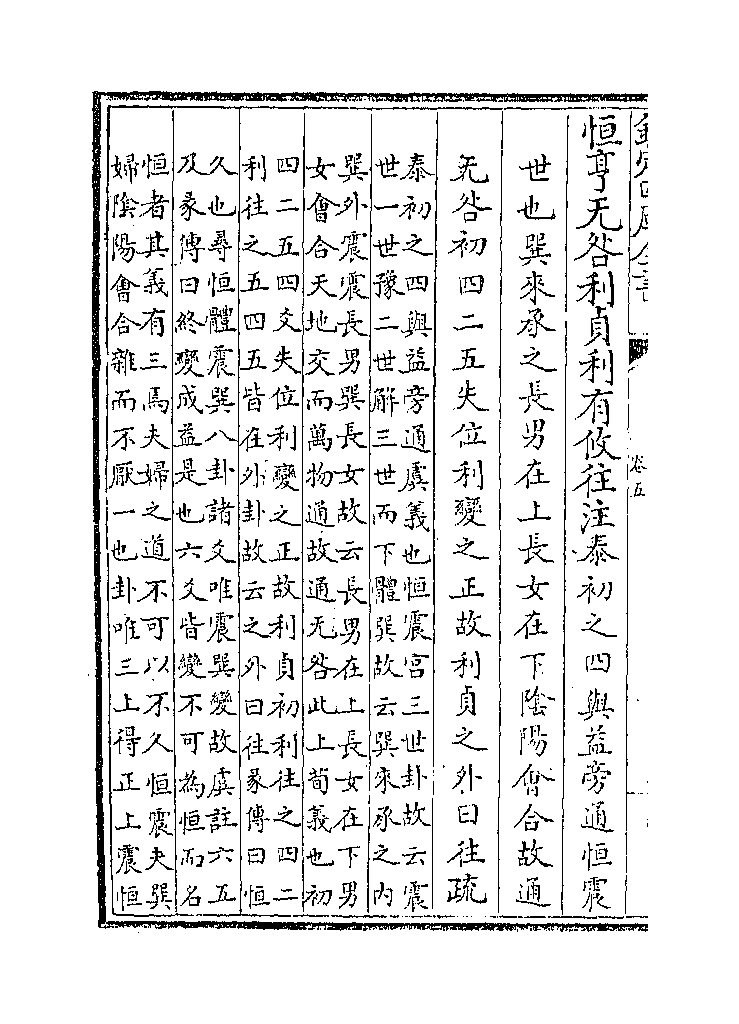 欽定四庫全書
卷五
恒亨无咎利貞利有攸往注泰初之四與益旁通恒震
世也巽來承之長男在上長女在下陰陽會合故通
无咎初四二五失位利變之正故利貞之外曰往疏
泰初之四與益旁通虞義也恒震宮三世卦故云震
世一世豫二世解三世而下體巽故云巽來承之內
巽外震震長男巽長女故云長男在上長女在下男
女會合天地交而萬物通故通无咎此上荀義也初
四二五四爻失位利變之正故利貞初利往之四二
利往之五四五皆在外卦故云之外曰往彖傳曰恒
久也尋恒體震巽八卦諸爻唯震巽變故虞註六五
及彖傳曰終變成益是也六爻皆變不可為恒而名
恒者其義有三焉夫婦之道不可以不久恒震夫巽
婦陰陽會合雜而不厭一也卦唯三上得正上震恒